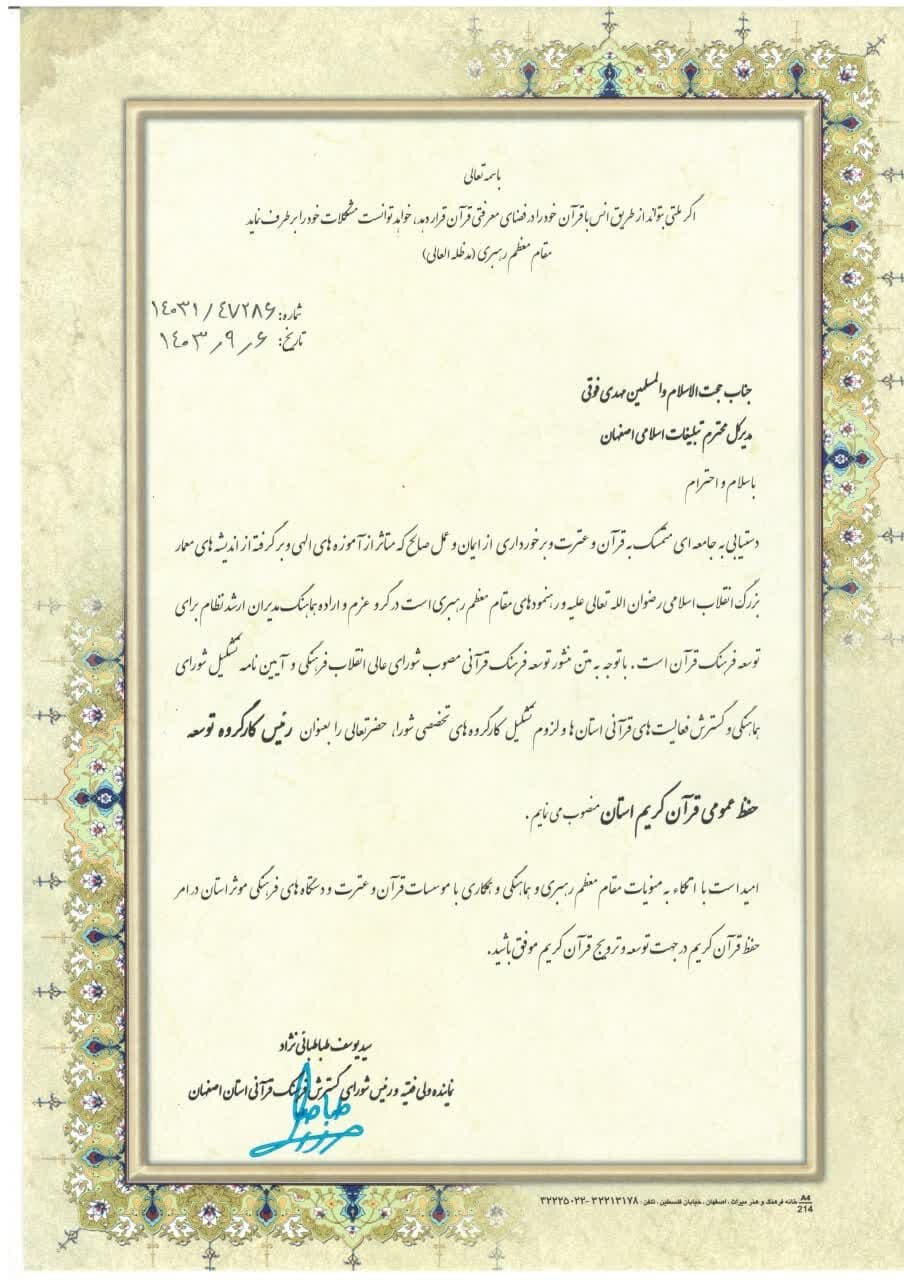 باسمه تعالی
اگر ملتی بتواند از طریق انس با قرآن خود را در فضای معرفتی قرآن قرار دهد، خواهد توانست مشکلات خود را برطرف نماید
مقام معظم رهبری (مدظله العالی)
شماره: ۱۴۰۳۱/۴۷۲۸۶
تاریخ: ۱۴۰۳٫۹٫۶
جناب حجت الاسلام والمسلمین مهدی فوقی
مدیرکل محترم تبلیغات اسلامی اصفهان
باسلام و احترام
دستیابی به جامعه ای متمسک به قرآن و عترت و برخورداری از ایمان و عمل صالح که متاثر از آموزه های الهی و برگرفته از اندیشه های معمار
بزرگ انقلاب اسلامی رضوان الله تعالی علیه و رهنمودهای مقام معظم رهبری است درگرو عزم و اراده هماهنگ مدیران ارشد نظام برای
توسعه فرهنگ قرآن است. باتوجه به متن منشور توسعه فرهنگ قرآنی مصوب شورای عالی انقلاب فرهنگی و آیین نامه تشکیل شورای
هماهنگی و گسترش فعالیت های قرآنی استان ها و لزوم تشکیل کارگروه های تخصصی شورا، حضرتعالی را بعنوان رئیس کارگروه توسعه
حفظ عمومی قرآن کریم استان منصوب می نمایم.
امید است با اتکاء به منویات مقام معظم رهبری و هماهنگی و همکاری با موسسات قرآن و عترت و دستگاه های فرهنگی موثر استان در امر
حفظ قرآن کریم در جهت توسعه و ترویج قرآن کریم موفق باشید.
سیدیوسف طباطبائی نژاد
نماینده ولی فقیه و رئیس شورای گسترش فرهنگ قرآنی استان اصفهان
A4
214
خانه فرهنگ و هنر میراث، اصفهان، خیابان فلسطین، تلفن: ۳۲۲۱۳۱۷۸-۳۲۲۲۵۰۲۲